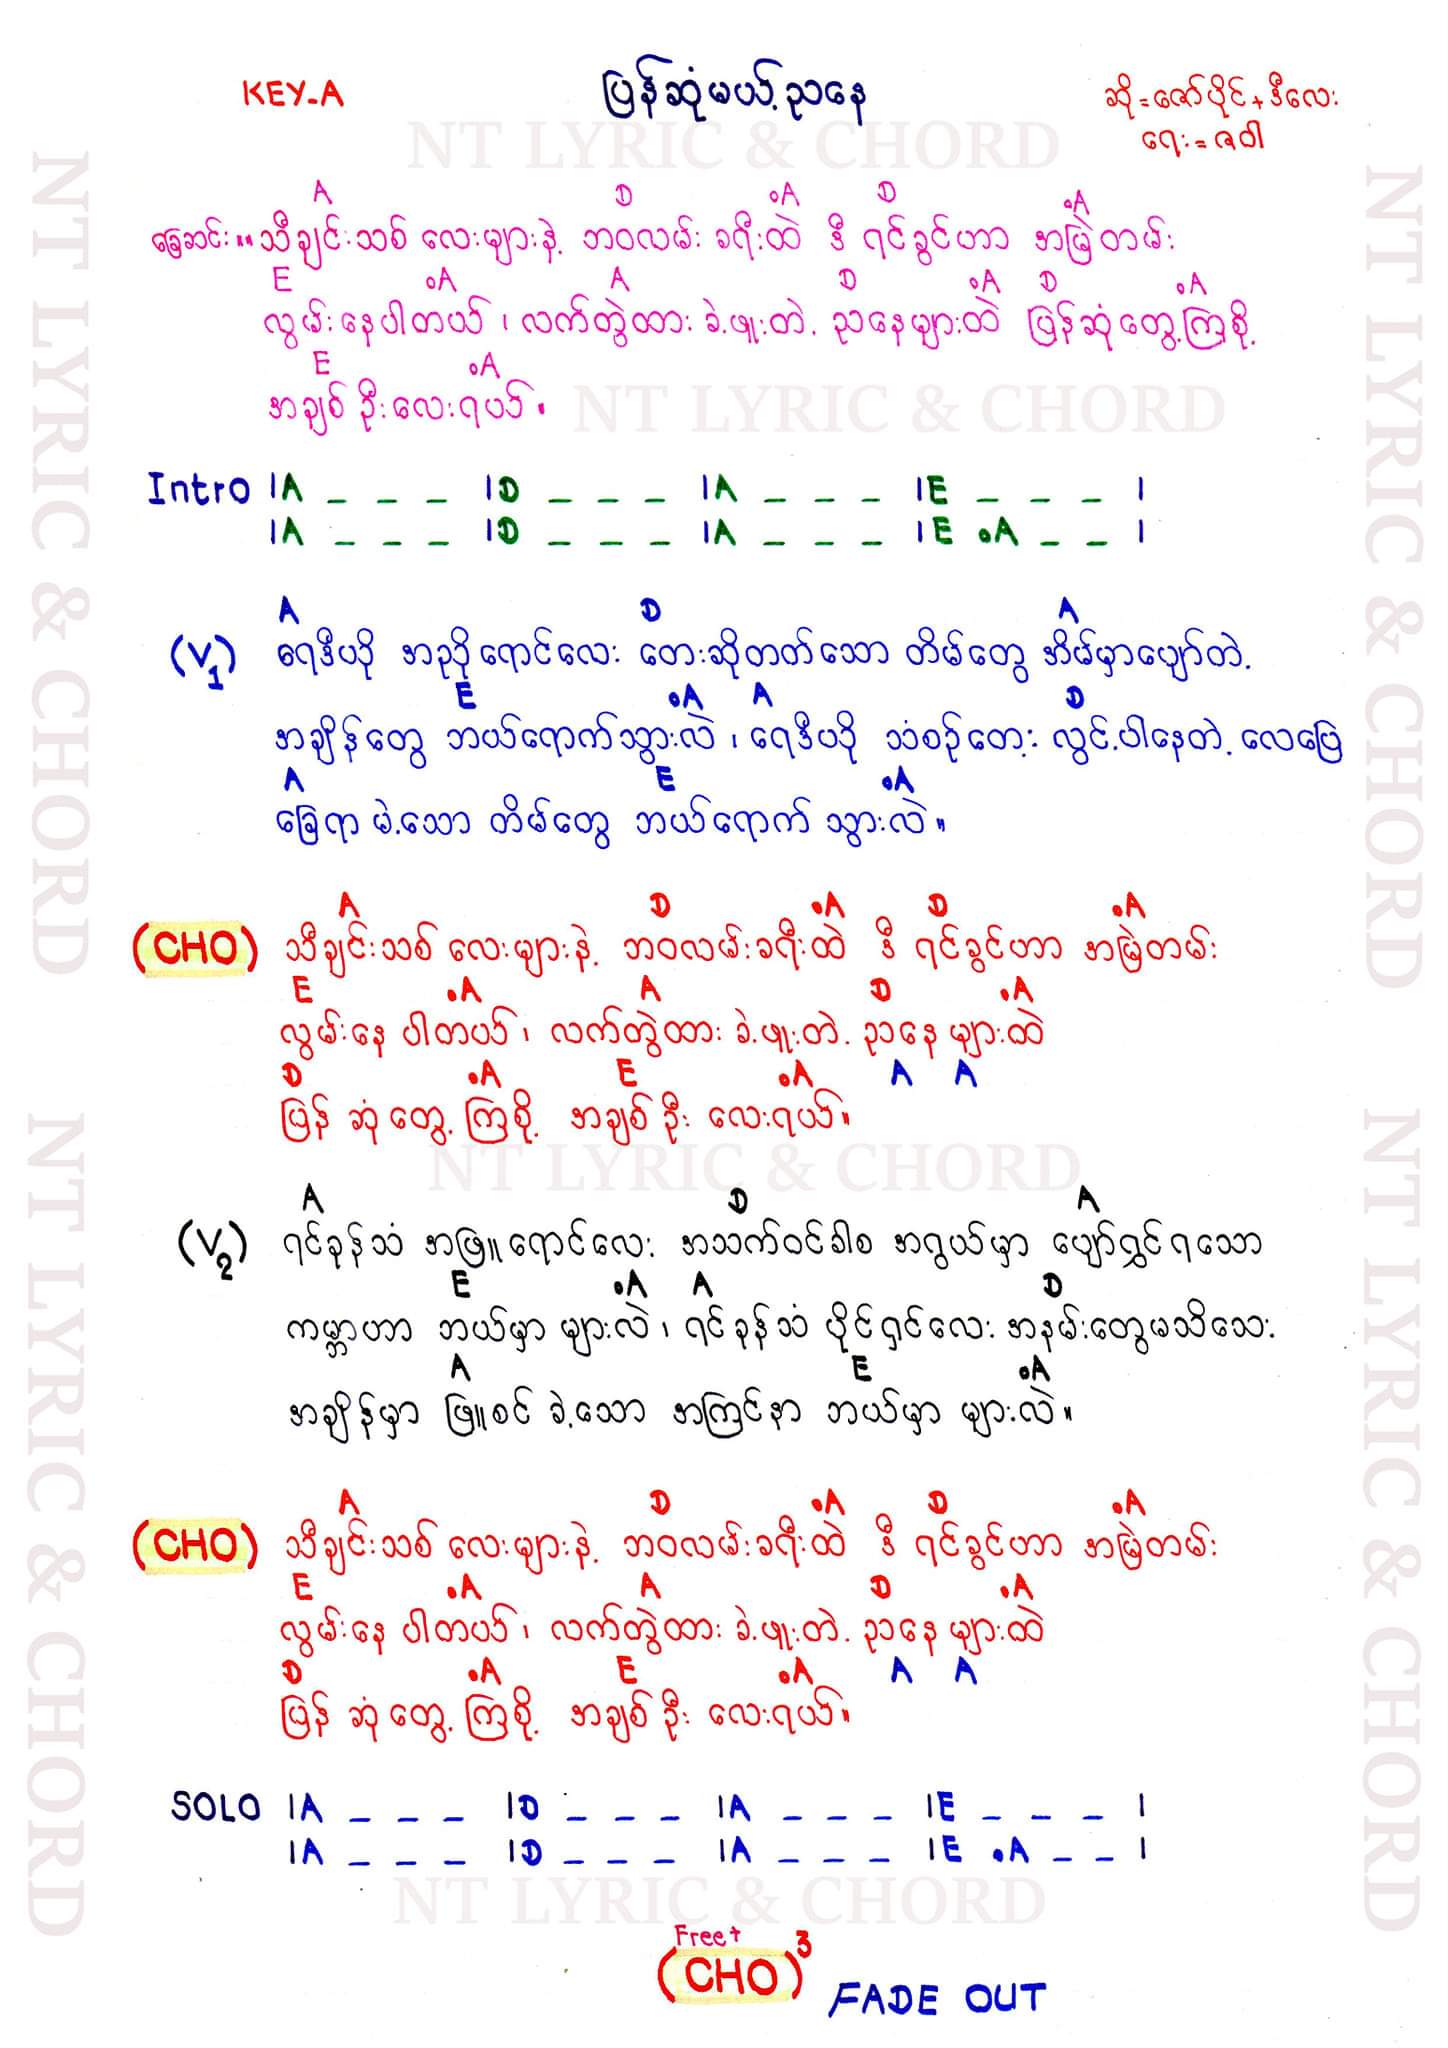 KEY-A
ပြန်ဆုံမယ့်ညနေ
ဆို = ဇော်ပိုင် + ဒီလေး
ရေး = ဇဝါ
NT LYRIC & CHORD
A D .A D .A
ခြေဆင်း .. သီချင်းသစ် လေးများနဲ့ ဘဝလမ်း ခရီးထဲ ဒီ ရင်ခွင်ဟာ အမြဲတမ်း
E .A A D .A D .A
လွမ်းနေပါတယ် ၊ လက်တွဲထား ခဲ့ဖူးတဲ့ ညနေများထဲ ပြန်ဆုံတွေ့ကြစို့
E .A
အချစ်ဦးလေးရယ် ။
NT LYRIC & CHORD
Intro |A _ _ _ |D _ _ _ |A _ _ _ |E _ _ _ |
|A _ _ _ |D _ _ _ |A _ _ _ |E .A _ _ |
A D A
(V1) ရေဒီယို အဥဥိုရောင်လေး တေးဆိုတတ်သော တိမ်တွေ အိမ်မှာပျော်တဲ့
E .A A D
အချိန်တွေ ဘယ်ရောက်သွားလဲ ၊ ရေဒီယို သံစဉ်တေး လွင့်ပါနေတဲ့ လေပြေ
A E .A
ခြေရာ မဲ့သော တိမ်တွေ ဘယ်ရောက် သွားလဲ ။
A D .A D .A
(CHO) သီချင်းသစ် လေးများနဲ့ ဘဝလမ်းခရီးထဲ ဒီ ရင်ခွင်ဟာ အမြဲတမ်း
E .A A D .A
လွမ်းနေ ပါတယ် ၊ လက်တွဲထား ခဲ့ဖူးတဲ့ ညနေ များထဲ
D .A E .A A A
ပြန် ဆုံ တွေ့ ကြစို့ အချစ်ဦး လေးရယ် ။
NT LYRIC & CHORD
A D A
(V2) ရင်ခုန်သံ အဖြူရောင်လေး အသက်ဝင်ခါစ အရွယ်မှာ ပျော်ရွှင်ရသော
E .A A D
ကမ္ဘာဟာ ဘယ်မှာ များလဲ ၊ ရင်ခုန်သံ ပိုင်ရှင်လေး အနမ်းတွေမသိသေး
A E .A
အချိန်မှာ ဖြူစင် ခဲ့သော အကြင်နာ ဘယ်မှာ များလဲ ။
A D .A D .A
(CHO) သီချင်းသစ် လေးများနဲ့ ဘဝလမ်းခရီးထဲ ဒီ ရင်ခွင်ဟာ အမြဲတမ်း
E .A A D .A
လွမ်းနေ ပါတယ် ၊ လက်တွဲထား ခဲ့ဖူးတဲ့ ညနေ များထဲ
D .A E .A A A
ပြန် ဆုံ တွေ့ ကြစို့ အချစ်ဦး လေးရယ် ။
SOLO |A _ _ _ |D _ _ _ |A _ _ _ |E _ _ _ |
|A _ _ _ |D _ _ _ |A _ _ _ |E .A _ _ |
NT LYRIC & CHORD
Free+
(CHO)3
FADE OUT
NT LYRIC & CHORD
NT LYRIC & CHORD
NT LYRIC & CHORD
NT LYRIC & CHORD